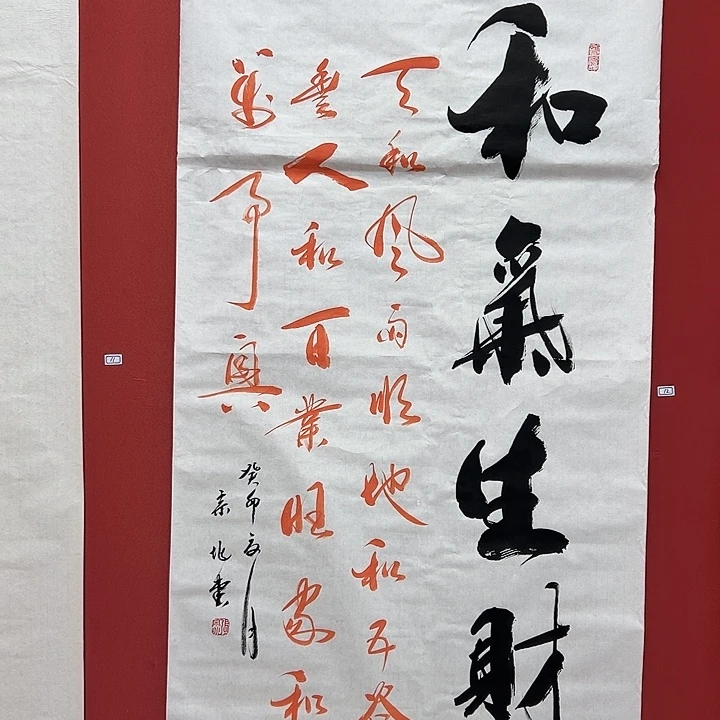 和氣生財
天和風雨順地和五谷
豐人和百業旺家和
萬事興
癸卯